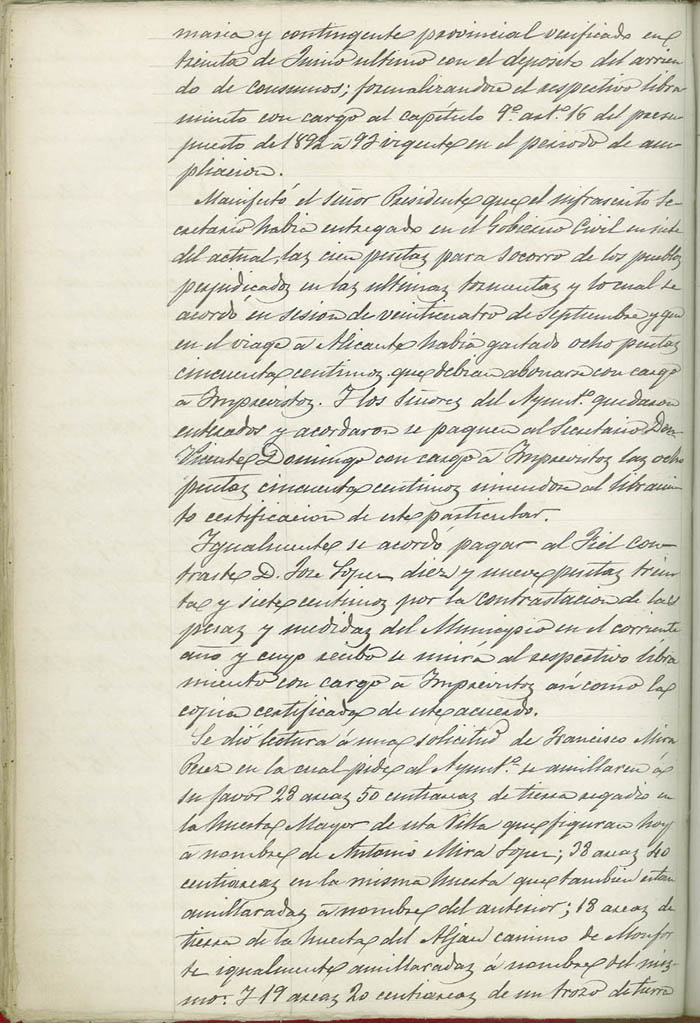 maria y contingente provincial verificado en
treinta de Junio ultimo con el deposito del arrien
do de consumos; formalizandose el respectivo libra
miento con cargo al capítulo 9º artº 16 del presu
puesto de 1892 á 93 vigente en el periodo de am
pliacion.
Manifestó el señor Presidente que el infrascrito Se
cretario habia entregado en el Gobierno Civil en siete
del actual, las cien pesetas para socorro de los pueblos
perjudicados en las ultimas tormentas y lo cual se
acordó en sesion de veinticuatro de Septiembre y que
en el viage á Alicante habia gastado ocho pesetas
cincuenta centimos que debian abonarse con cargo
á Imprevistos. Y los Señores del Ayuntº quedaron
enterados y acordaron se paguen al Secretario Don
Vicente Domingo con cargo á Imprevistos las ocho
pesetas cincuenta centimos uniendose al libramien
to certificacion de este particular.
Igualmente se acordó pagar al Fiel con
traste D. Jose Lopez diez y nueve pesetas trein
ta y siete centimos por la contrastacion de las
pesas y medidas del Municipio en el corriente
año y cuyo recibo se unirá al respectivo libra
miento con cargo á Imprevistos asi como la
copia certificada de este acuerdo.
Se dió lectura á una solicitud de Francisco Mira
Perez en la cual pide al Ayuntº se amillaren á
su favor 28 areas 50 centiareas de tierra regadio en
la huerta Mayor de esta Villa que figuran hoy
á nombre de Antonio Mira Lopez; 38 areas 40
centiareas en la misma huerta que tambien estan
amillaradas á nombre del anterior; 18 areas de
tierra de la huerta del Aljau camino de Monfor
te igualmente amillaradas á nombre del mis
mo. Y 19 areas 20 centiareas de un trozo de tierra